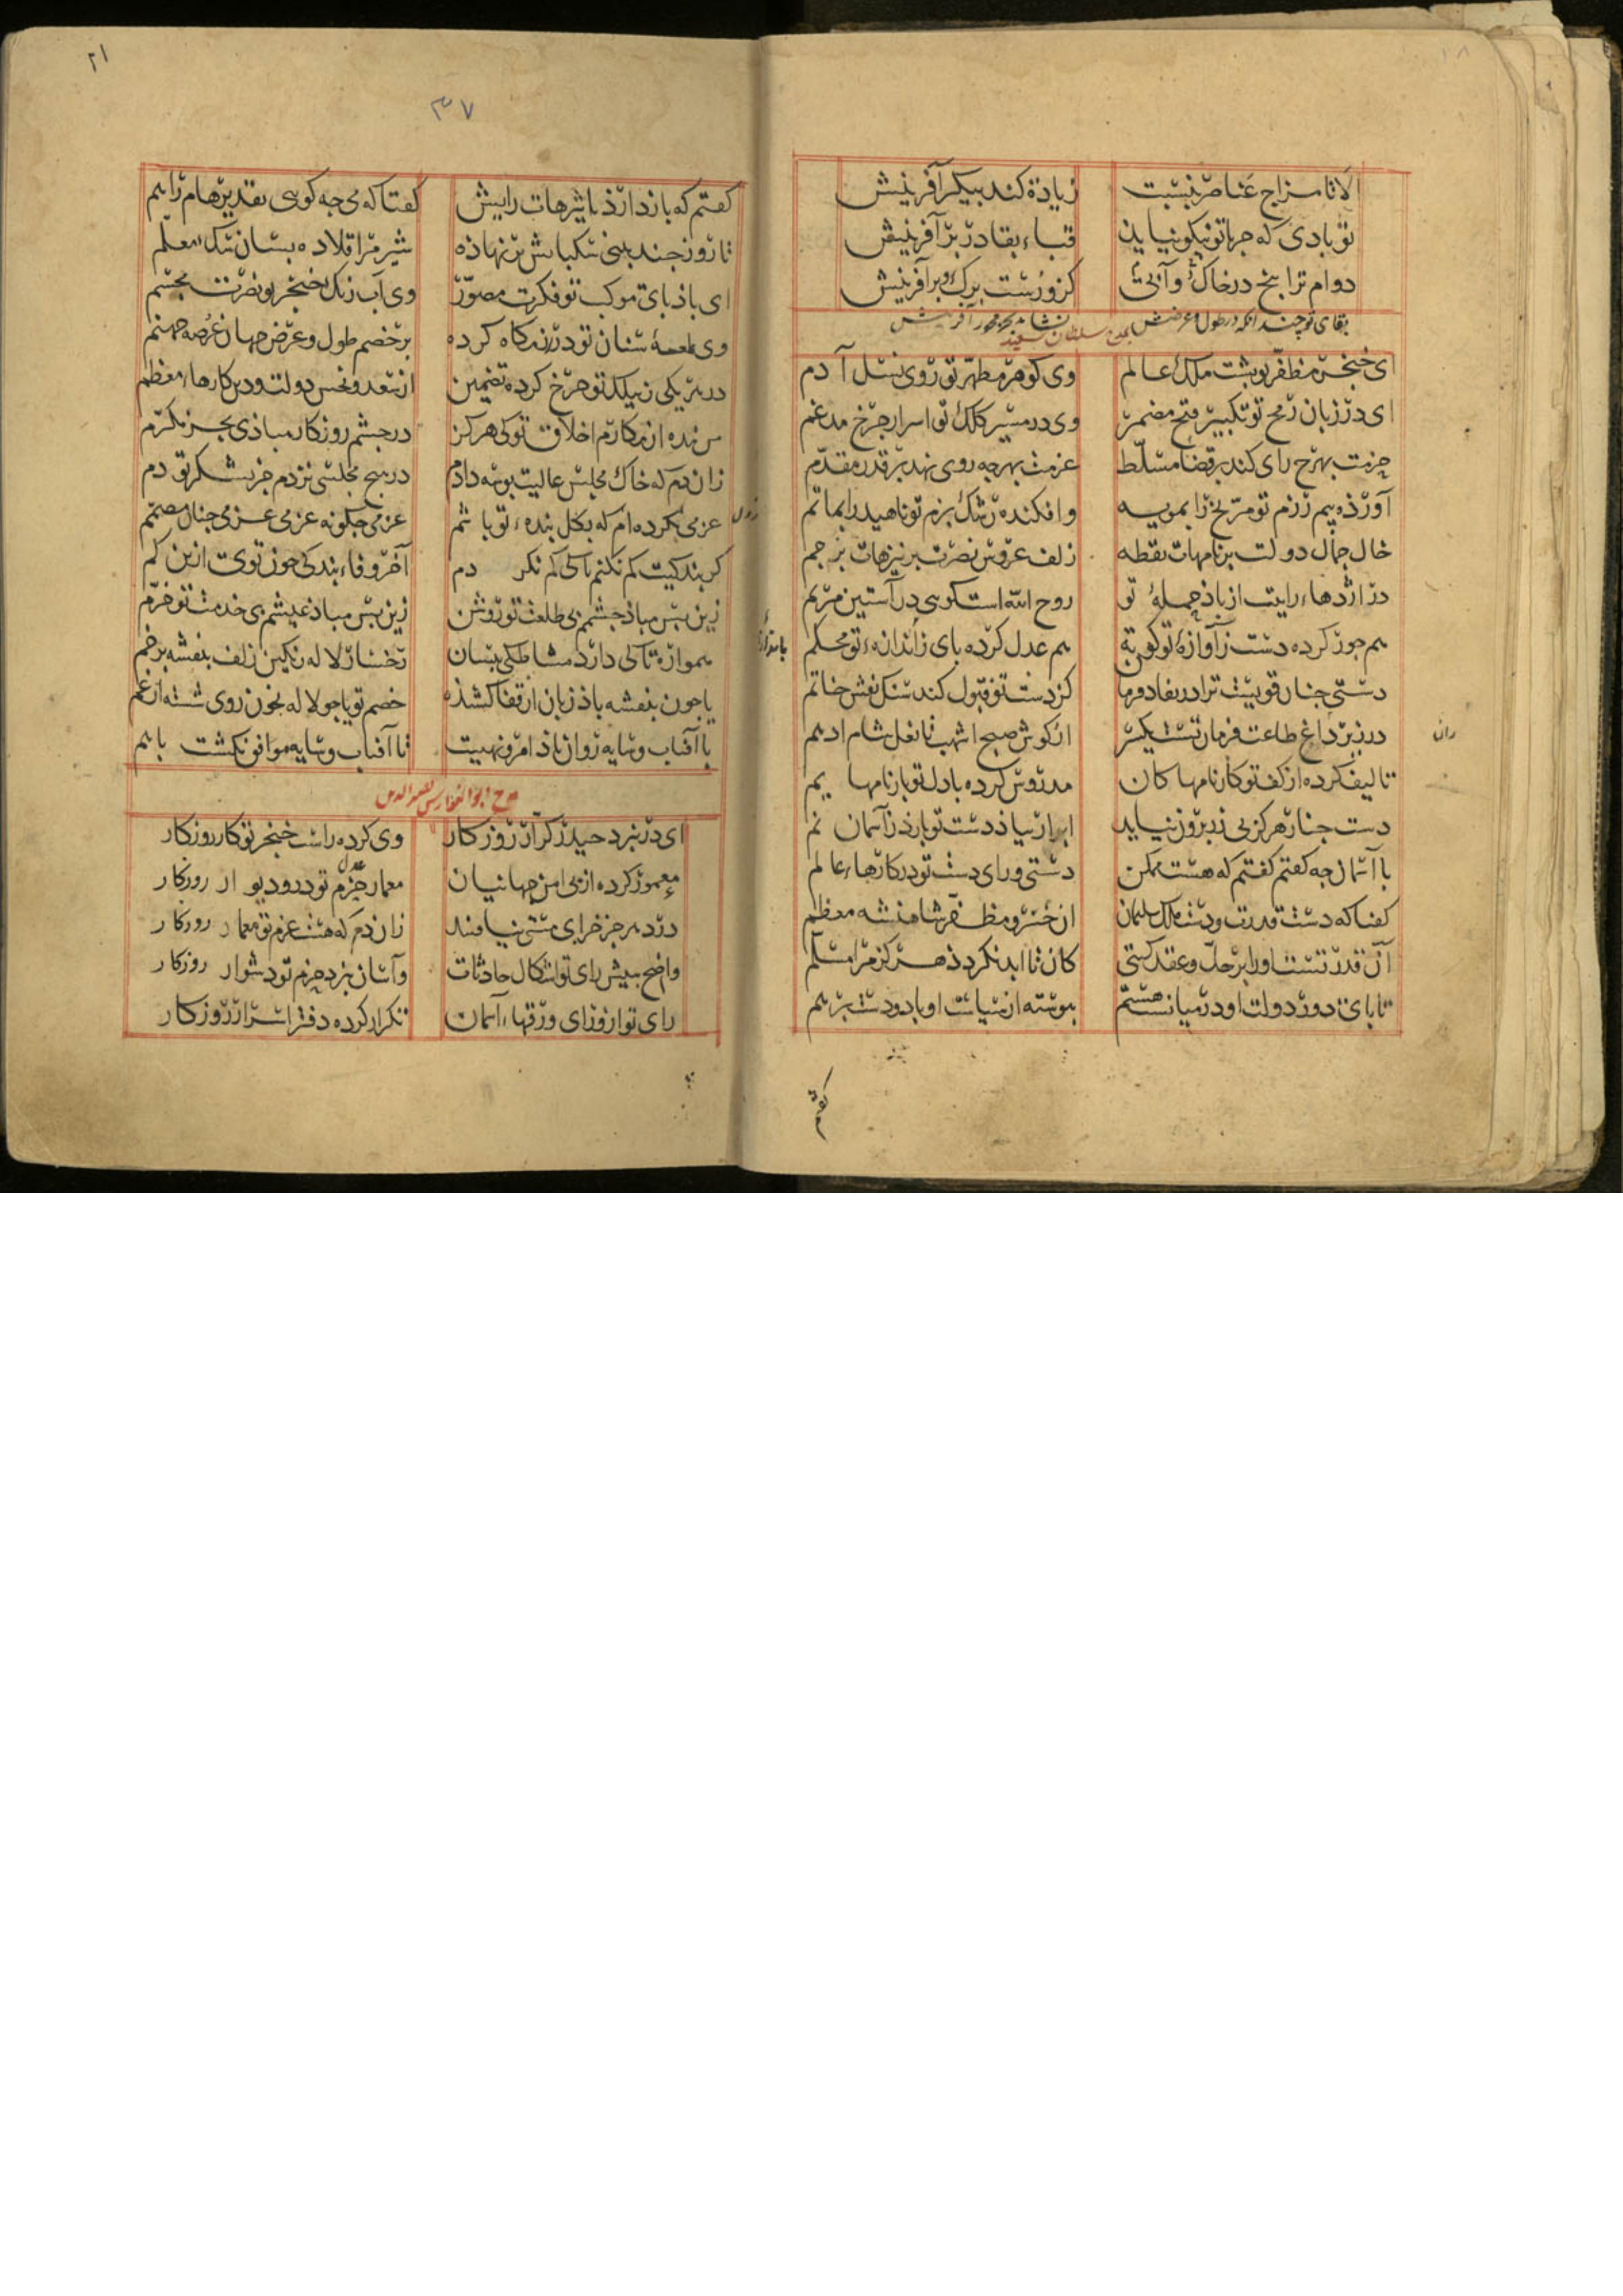 الا تا مزاج عناصر بنسبت زیادة کند پیکر آفرینش
تو بادی که جز با تو نیکو نیاید قباء بقا در بر آفرینش
دوام ترا بیخ در خاک و آبی کزو رست برک و بر آفرینش
بقای تو چندانکه در طول و عرضش آفرینش
ای خنجر مظفر تو پشت ملک عالم وی کوهر مطهر تو روی نسل آدم
ای در زبان رمح تو تکبیر فتح مضمر وی در مسیر کلک تو اسرار چرخ مدغم
حزمت بهرج رای کند بر قضا مسلط عزمت بهرچه روی نهد بر قدر مقدم
آورده بیم رزم تو مریخ را بمویه وافکنده رشک بزم تو ناهید را بماتم
خال جمال دولت بر نامهات نقطه زلف عروس نصرت بر نیزهات پرچم
در اژدهاء رایت از باد حملهٔ تو روح الله است کویی در آستین مریم
هم جور کرده دست ز آوازهٔ تو کوته هم عدل کرده پای ز اندازهء تو محکم
دستی چنان قویست ترا در نفاذ فرمان کز دست تو قبول کند سنک نقش خاتم
در زیر داغ طاعت فرمان تست یکسر از کوش صبح اشهب تا نعل شام ادهم
تالیف کرده از کف تو کارنامها کان مدروس کرده با دل تو بارنامها یم
دست چنار هرکز بی زر برون نیاید ابر ار بیاد دست تو بارد ز آسمان نم
با آسمان چه کفتم کفتم که هست ممکن دستی ورای دست تو در کارهاء عالم
کفتا که دست قدرت و دست ملک سلیمان آن خسرو مظفر شاهنشه معظم
آن قدرتست او را بر حل و عقد کیتی کان تا ابد نکردد هرکز مرا مسلم
تا پای دور دولت او در میان نشستم پیوسته از سیاست او باد و دست بر هم
کفتم
کفتم که باز دارد تاثیرهات رایش کفتا که می چه کویی تقدیرهام را هم
تا روز چند بینی سکبانش بر نهاده شیر مرا قلاده بسان سک معلم
ای باد پای موکب تو فکرت مصور وی آب رنک خنجر تو نصرت مجسم
وی طعمهٔ سنان تو در رزمکاه کرده بر خصم طول و عرض جهان عرصه جهنم
در تریکی ز بیلک تو چرخ کرده تضمین از سعد و نحس دولت و دین کارهاء معظم
من بنده از مکارم اخلاق تو کی هرکز در چشم روزکار مبادی بجز مکرم
زان دم که خاک مجلس عالیت بوسه دادم در هیچ مجلسی نزدم جز بشکر تو دم
عزمی بکرده ام که بکل بندهء تو باشم عزمی چکونه عزمی عزمی چنان مصمم
کر بندکیت کم نکنم تا کی کم نکردم آخر وفاء بندکی چون توی ازین کم
زین پس مباد چشمم بی طلعت تو روشن زین پس مباد عیشم بی خدمت تو خرم
همواره تا کی دارد مشاطکی نیسان رخسار لاله رنکین زلف بنفشه پر خم
یا چون بنفشه باد زبان از قفا کشیده خصم تو یا چو لاله بخون روی شسته از غم
با آفتاب و سایه روان باد امر و نهیت تا آفتاب و سایه موافق نکشت با هم
مدح ابوالفوارس نصیرالدین
ای در نبرد حیدر کرار روزکار وی کرده راست خنجر تو کار روزکار
معمور کرده از پی امن جهانیان معمار حزم تو در و دیوار روزکار
در دهر جز خرابی مستی نیافتند زان دم که هست عزم تو معمار روزکار
واضح بپیش رای تو اشکال حادثات وآسان بنزد حزم تو دشوار روزکار
رای تو از ورای ورقهاء آسمان تکرار کرده دفتر اسرار روزکار